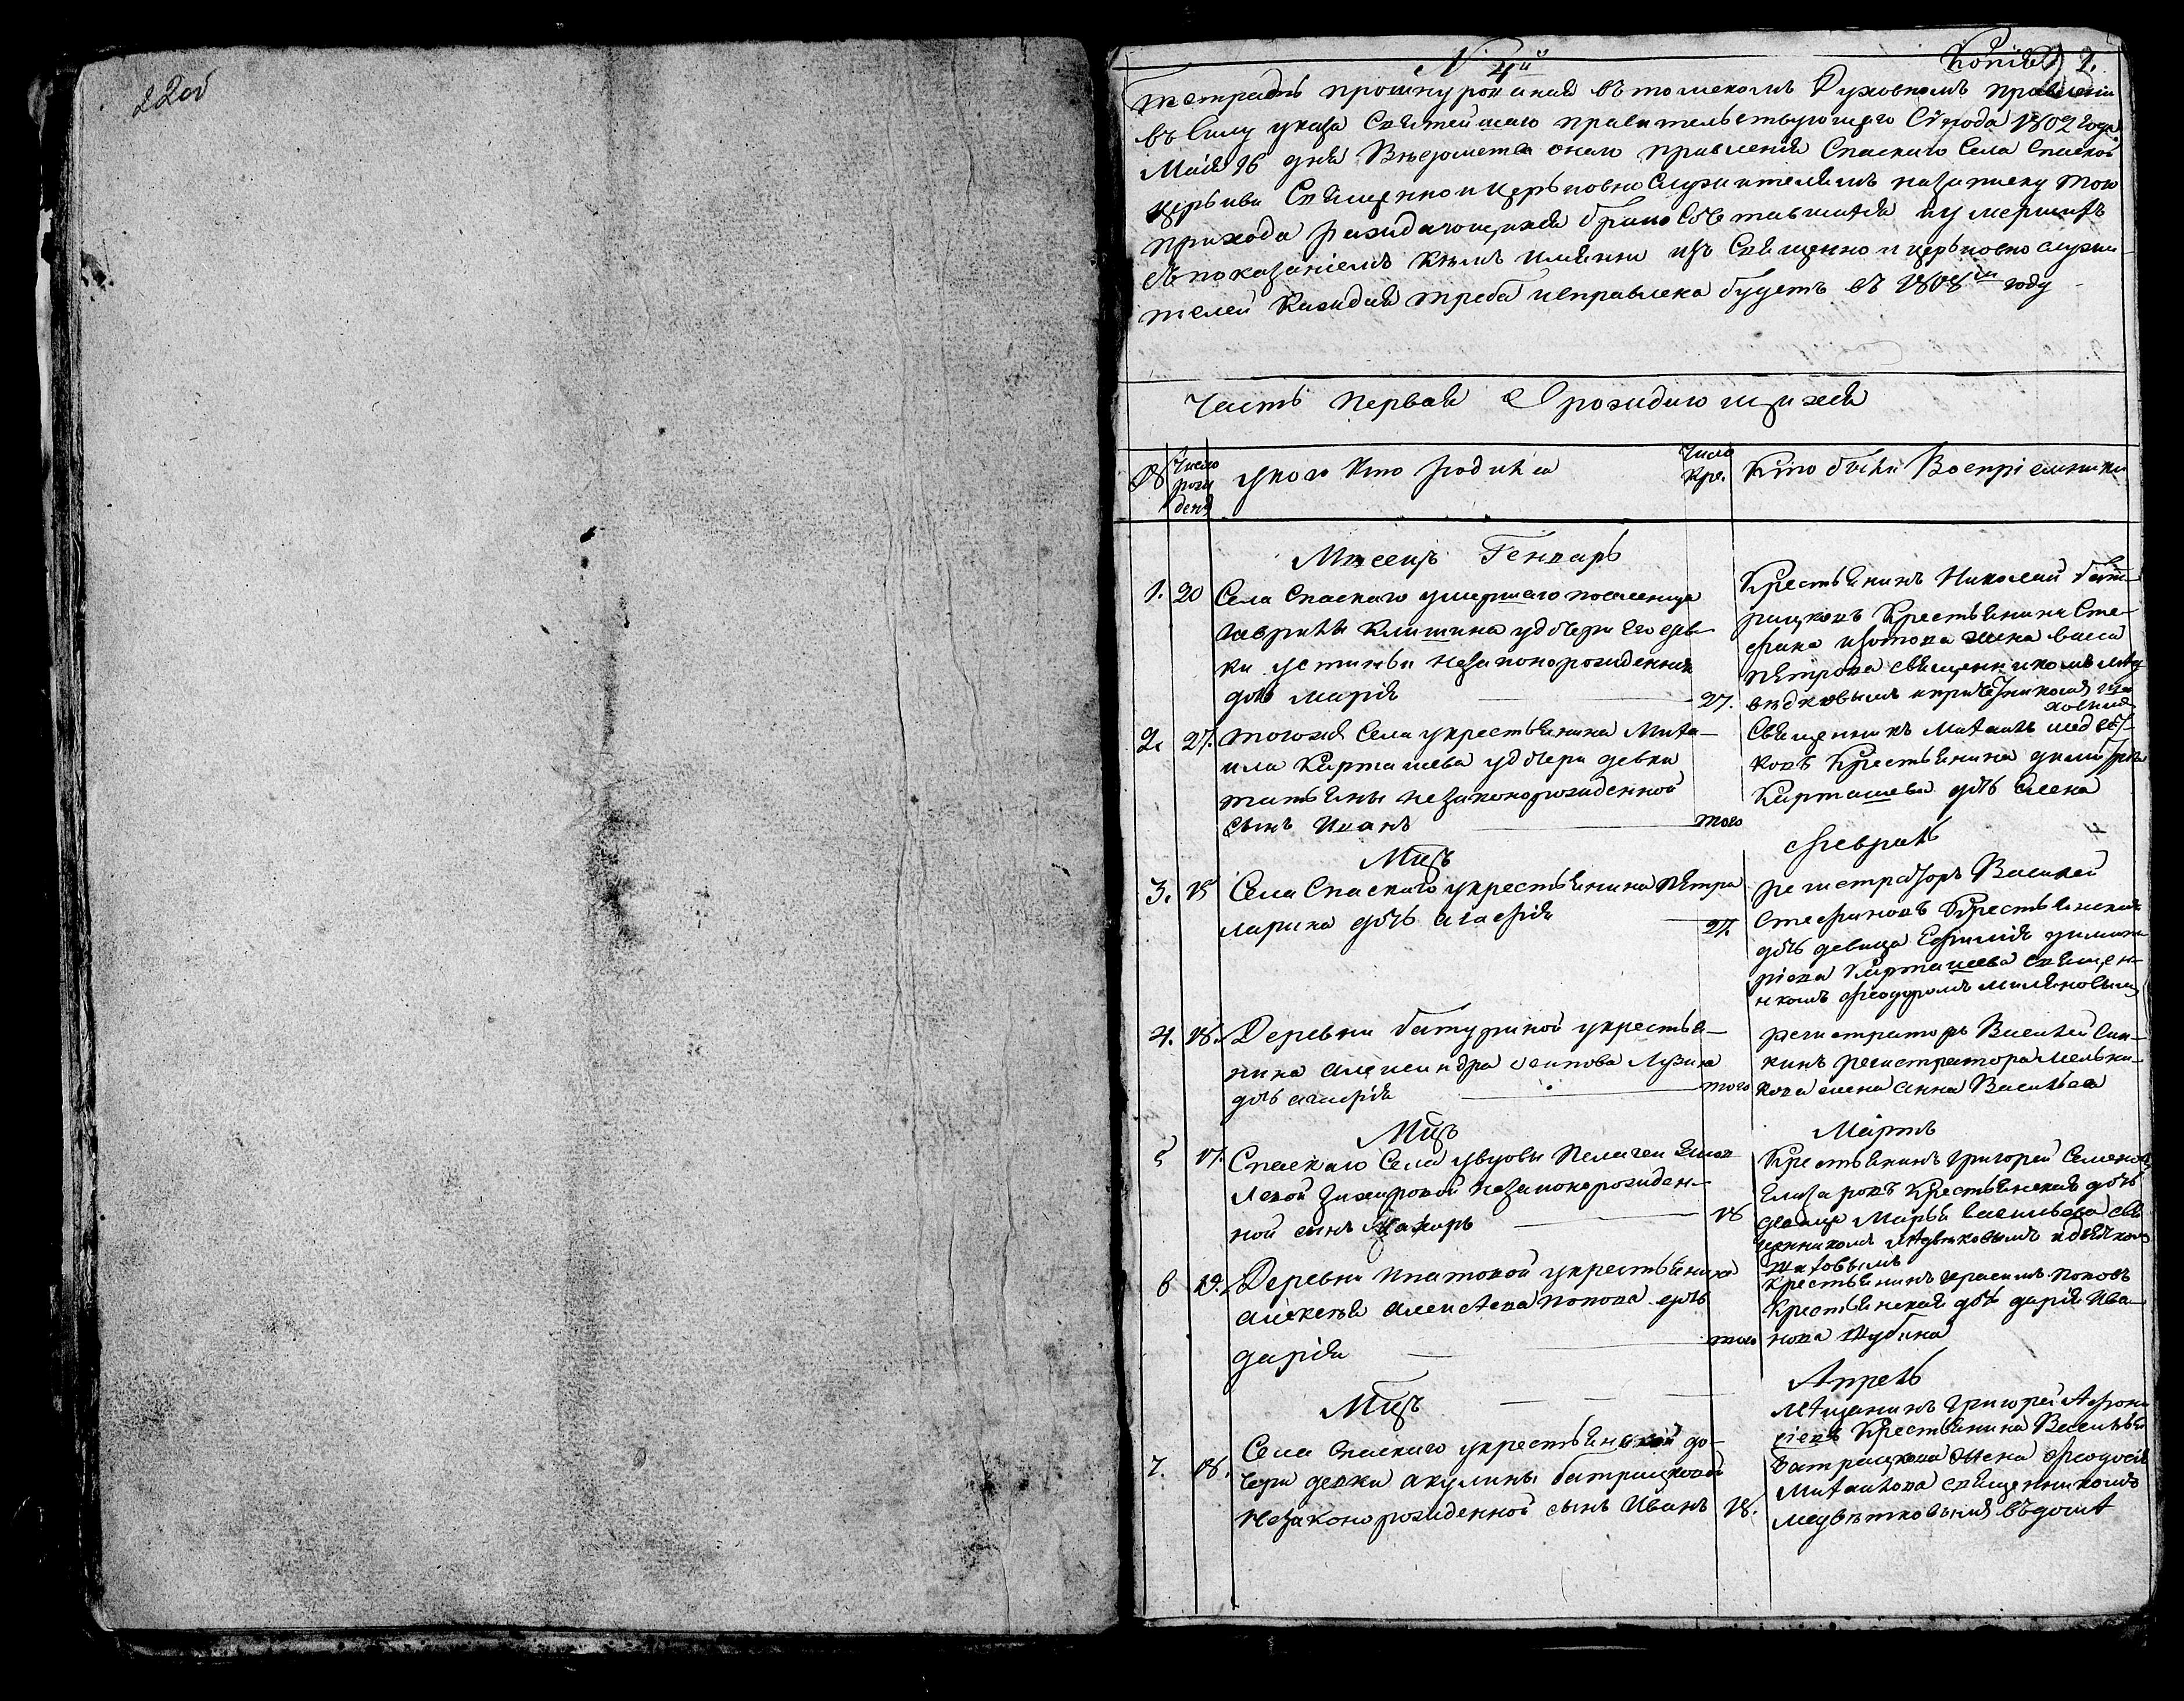 22об
№ 4й
Копія 1.
Тетрадь прошнурованная въ томскомъ Духовномъ правленіи
въ Силу указа Святейшаго правительствующаго Сѵнода 1802 года
Маія 16 дня Вѣдомства онаго правленія Спаскаго Села Спаской
церькви Священно и церьковно Служителямъ на записку того
прихода раждающихся бракосочетавшихся и умершихъ
съ показаніемъ кѣмъ имянно изъ Священно и церьковно служи
телей каждая треба исправлена будетъ въ 1808м году
Часть первая О раждающихся
№
Число рож денія
у кого кто родился
Число кре.
Кто были Воспріемники
Месецъ Генварь
1. 20 Села Спаскаго умершаго поселенца
Гаврилы Клишина у дочери его дев-
ки устиньи незаконорожденная
дочь Марія 27.
Крестьянинъ Николай бат-
рацковъ Крестьянина Сте-
фана изотова жена васса
петрова священникомъ мед
ведковымъ и причетникомъ
2. 27. тогожъ Села у крестьянина Миха-
ила Карташева у дочери девки
татьяны незаконорожденной
сынъ Иванъ того
Священникъ Михаилъ медвед-
ковъ Крестьянина димитрія
Карташева дочь Елена
Мцъ Февраль
3. 15 Села Спаскаго у крестьянина петра
ларина дочь агафія 27.
регистраторъ Василей
Стефановъ Крестьянская
дочь девица Ефимія
Карташева священ-
никомъ Феодоромъ
4. 18. Деревни батуриной у крестья-
нина александра осипова Лузина
дочь агафія того
регистраторъ Василей Син-
кинъ регистратора мельни-
кова жена анна Васильева
Мцъ Мартъ
5 17. Спаскаго Села у вдовы Пелагеи
незаконорожден-
ной сынъ Захаръ 18
Крестьянинъ григорей Семеновъ
Елизаровъ Крестьянская дочь
девица Марья васильева свя
щенникомъ медведковымъ и дьячкомъ
6 19. Деревни ипатовой у крестьянина
алексея алексеева попова дочь
дарія того
крестьянинъ герасимъ поповъ
Крестьянская дочь дарія Ива-
нова Шубина
Мцъ Апрель
7. 18. Села Спаскаго у крестьянской до-
чери девки акулины батрацковой
незаконорожденной сынъ Иванъ 18.
Мещанинъ григорей Афона
сіевъ Крестьянина Василья
батрацкова жена Феодосія
Михайлова священникомъ
медветковымъ въ доме